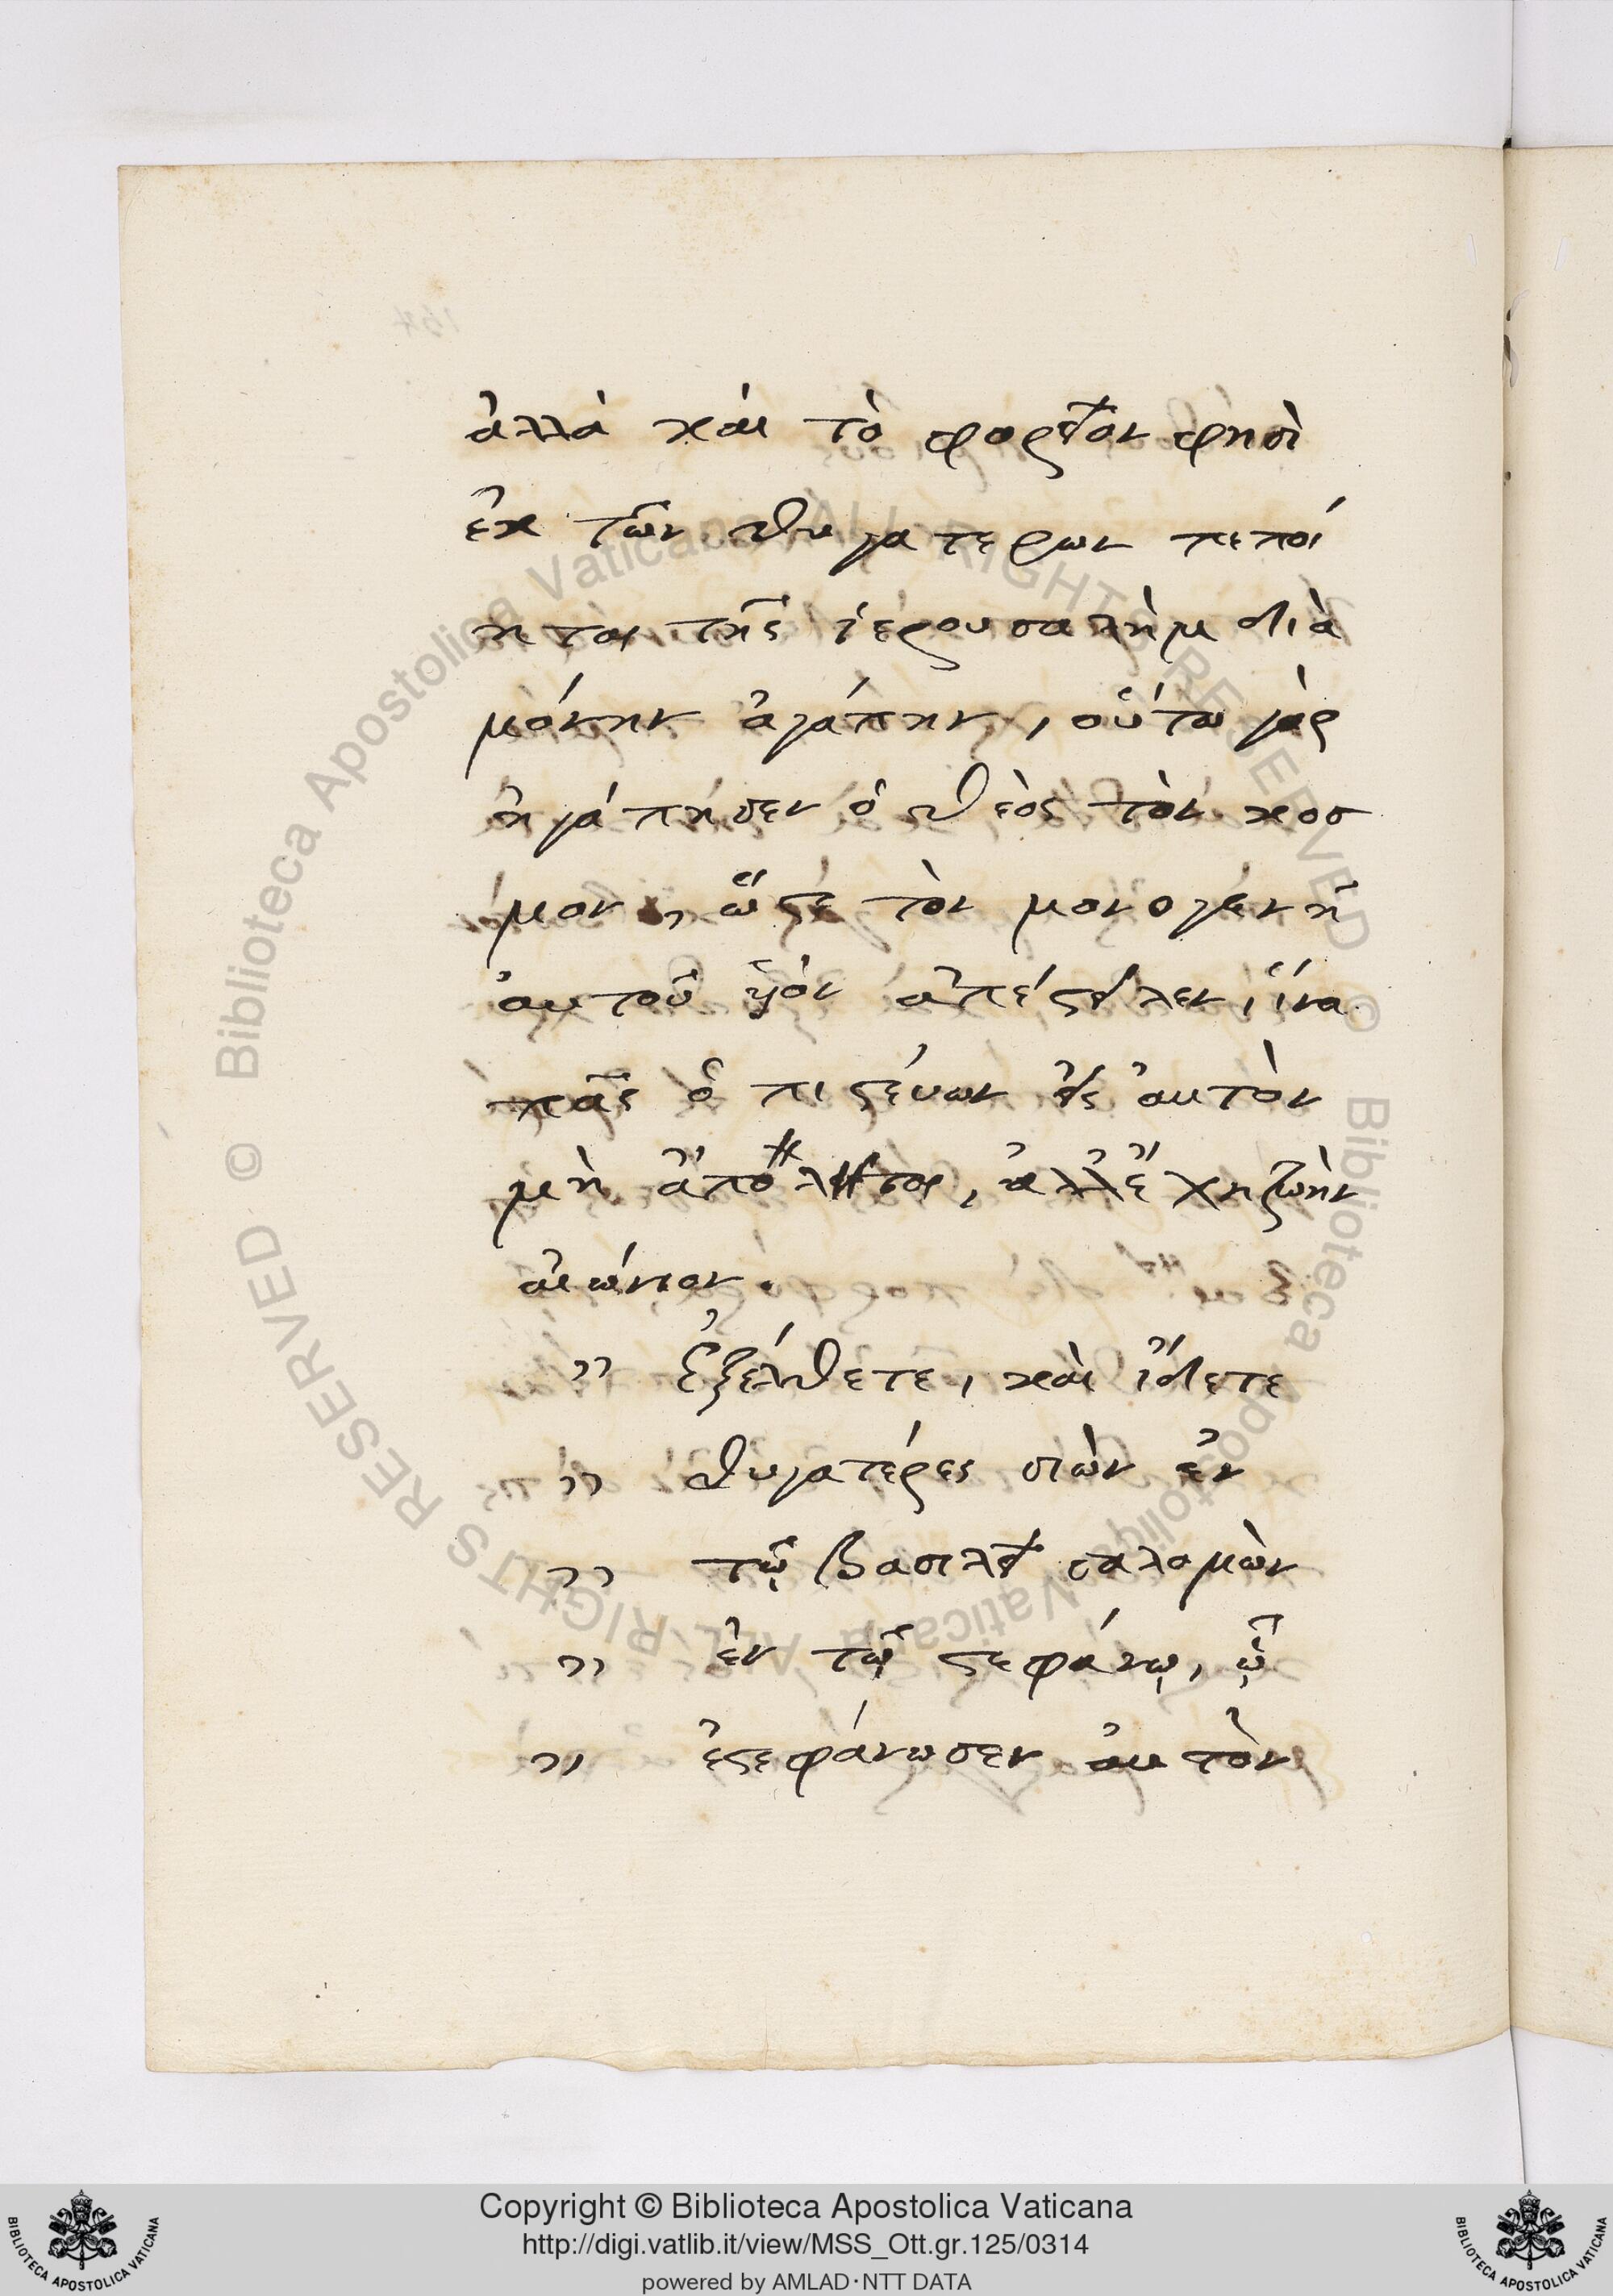 ἀλλὰ καὶ τὸ φορεῖον φησὶ
ἐκ τῶν θυγατερων πεποί
ηται τῆς ἱερουσαλὴμ διὰ
μόνην ἀγάπην, οὕτω γὰρ
ἠγάπησεν ὁ θεὸς τὸν κοσ
μον, ὥστε τὸν μονογενῆ
αὐτοῦ ὑϊὸν ἀπέστειλεν, ἵνα
πᾶς ὁ πιστέυων εἰς ἀυτὸν
μὴ ἀπόληται, ἀλλ' ἔχη ζωὴν
αἰώνιον.
" Ἐξέλθετε, καὶ ἴδετε
" θυγατέρες σιὼν ἐν
" τῷ βασιλεῖ σαλομὼν
" ἐν τῷ στεφάνῳ, ᾧ
" ἐστεφάνωσεν ἀυτὸν
Biblioteca Apostolica Vaticana ALL RIGHTS RESERVED ©
Biblioteca Apostolica Vaticana ALL RIGHTS RESERVED ©
Copyright © Biblioteca Apostolica Vaticana
http://digi.vatlib.it/view/MSS_Ott.gr.125/0314
powered by AMLAD·NTT DATA
BIBLIOTECA APOSTOLICA VATICANA
BIBLIOTECA APOSTOLICA VATICANA